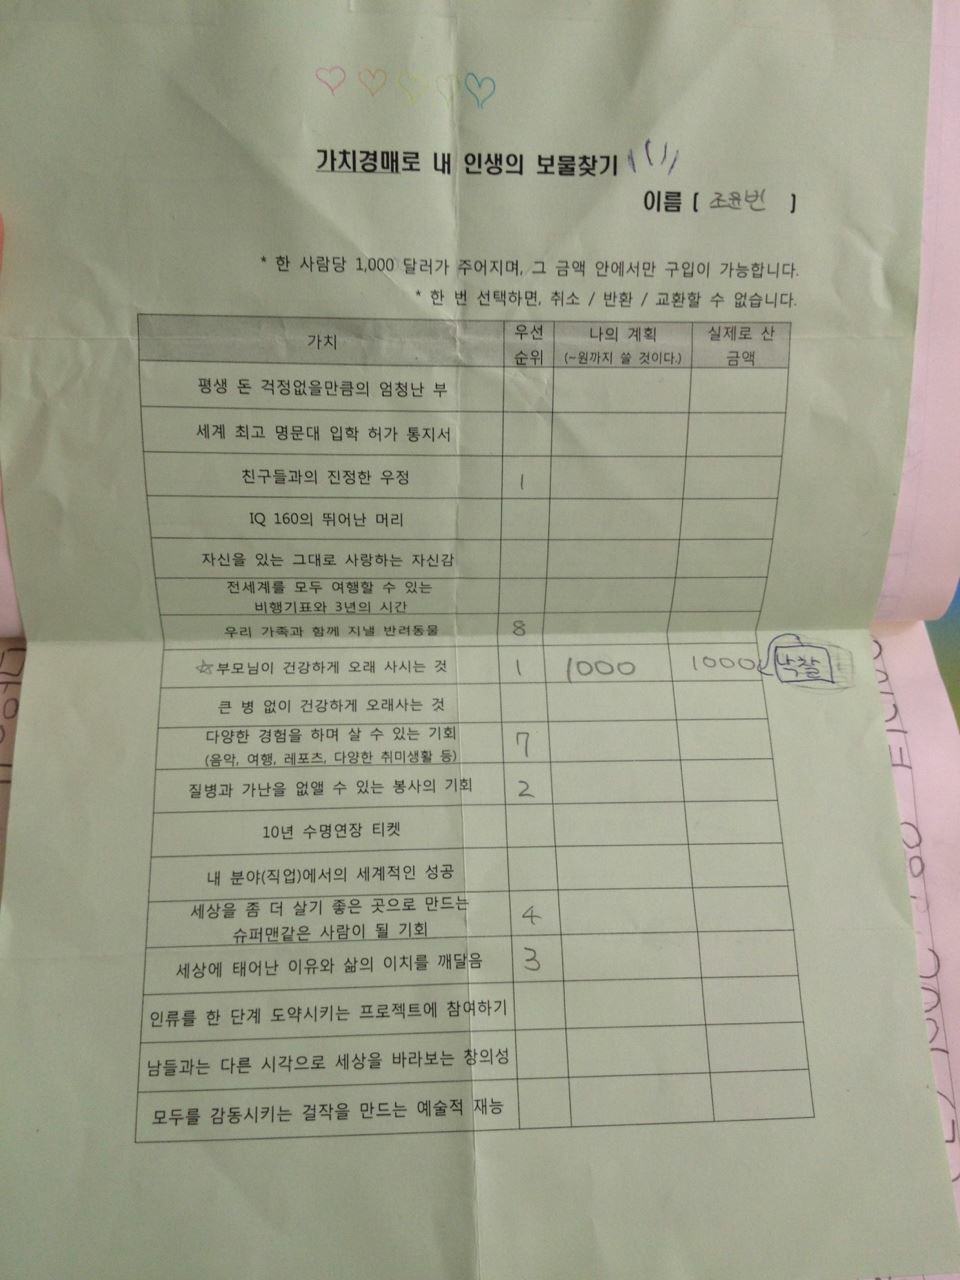 가치경매로 내 인생의 보물찾기
이름 [ 조윤번 ]
* 한 사람당 1,000 달러가 주어지며, 그 금액 안에서만 구입이 가능합니다.
* 한 번 선택하면, 취소 / 반환 / 교환할 수 없습니다.
가치 우선순위 나의 계획 (~원까지 쓸 것이다.) 실제로 산 금액
평생 돈 걱정없을만큼의 엄청난 부
세계 최고 명문대 입학 허가 통지서
친구들과의 진정한 우정 1
IQ 160의 뛰어난 머리
자신을 있는 그대로 사랑하는 자신감
전세계를 모두 여행할 수 있는
비행기표와 3년의 시간
우리 가족과 함께 지낼 반려동물 8
☆부모님이 건강하게 오래 사시는 것 1 1000 1000 낙찰
큰 병 없이 건강하게 오래사는 것
다양한 경험을 하며 살 수 있는 기회
(음악, 여행, 레포츠, 다양한 취미생활 등) 7
질병과 가난을 없앨 수 있는 봉사의 기회 2
10년 수명연장 티켓
내 분야(직업)에서의 세계적인 성공
세상을 좀 더 살기 좋은 곳으로 만드는
슈퍼맨같은 사람이 될 기회 4
세상에 태어난 이유와 삶의 이치를 깨달음 3
인류를 한 단계 도약시키는 프로젝트에 참여하기
남들과는 다른 시각으로 세상을 바라보는 창의성
모두를 감동시키는 걸작을 만드는 예술적 재능